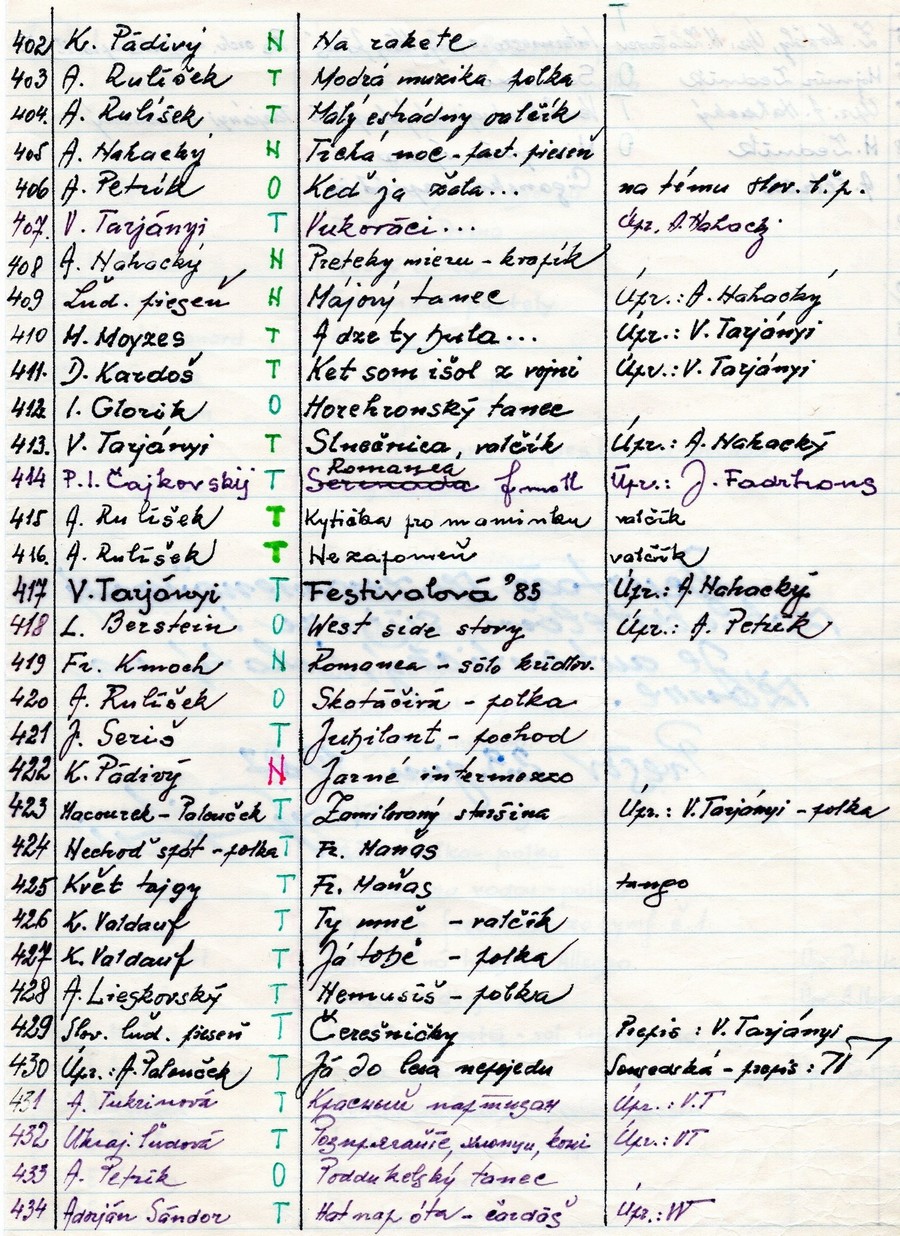 402 K. Pádivý N Na rakete
403 A. Rulíšek T Modrá muzika polka
404. A. Rulíšek T Malý estrádny valčík
405 A. Nahacký N Tichá noc - fact. pieseň
406 A. Petrík O Keď ja žala... na tému slov. ľ. p.
407. V. Tarjányi T Vukoráci... Úpr. A. Nahacký
408 A. Nahacký N Preteky mieru - krapík
409 Ľud. pieseň N Májový tanec Úpr.: A. Nahacký
410 M. Moyzes T A dze ty hula... Úpr.: V. Tarjányi
411. D. Kardoš T Ket som išol z vojni Úpr.: V. Tarjányi
412. I. Glorik O Horehronský tanec
413. V. Tarjányi T Slnečnica, valčík Úpr.: A. Nahacký
414 P. I. Čajkovskij T Romanca f moll Úpr.: J.
415 A. Rulíšek T Kytička pro maminku valčík
416. A. Rulíšek T Nezapomeň valčík
417 V. Tarjányi T Festivalová '85 Úpr.: A. Nahacký
418 L. Berstein O West side story Úpr.: A. Petrík
419 Fr. Kmoch N Romanca - sólo krídlov.
420 A. Rulíšek O Skotáčivá - polka
421 J. Seriš T Jubilant - pochod
422 K. Pádivý N Jarné intermezzo
423 Macourek - Palouček T Zamilovaný staršina Úpr.: V. Tarjányi - polka
424 Nechoď spát - polka T Fr. Maňas
425 Květ tajgy T Fr. Maňas tango
426 K. Valdauf T Ty mně - valčík
427 K. Valdauf T Já tobě - polka
428 A. Lieskovský T Nemusíš - polka
429 Slov. ľud. pieseň T Čerešničky Prepis: V. Tarjányi
430 Úpr.: A. Palouček T Já do lesa nepojedu Sousedská - prepis: VT
431 A. Tukrinová T Красный партизан Úpr.: V.T
432 Ukraj. ľudová T Розпрягайте, хлопці, коні Úpr.: VT
433 A. Petrík O Poddukelský tanec
434 Adorján Sándor T Hat nap óta - čardáš Úpr.: VT